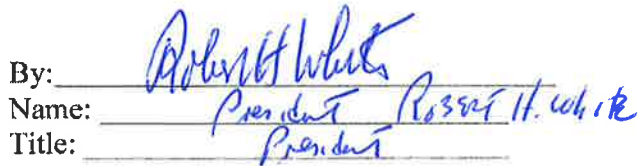 By: Robert H White
Name: President Robert H. White
Title: President